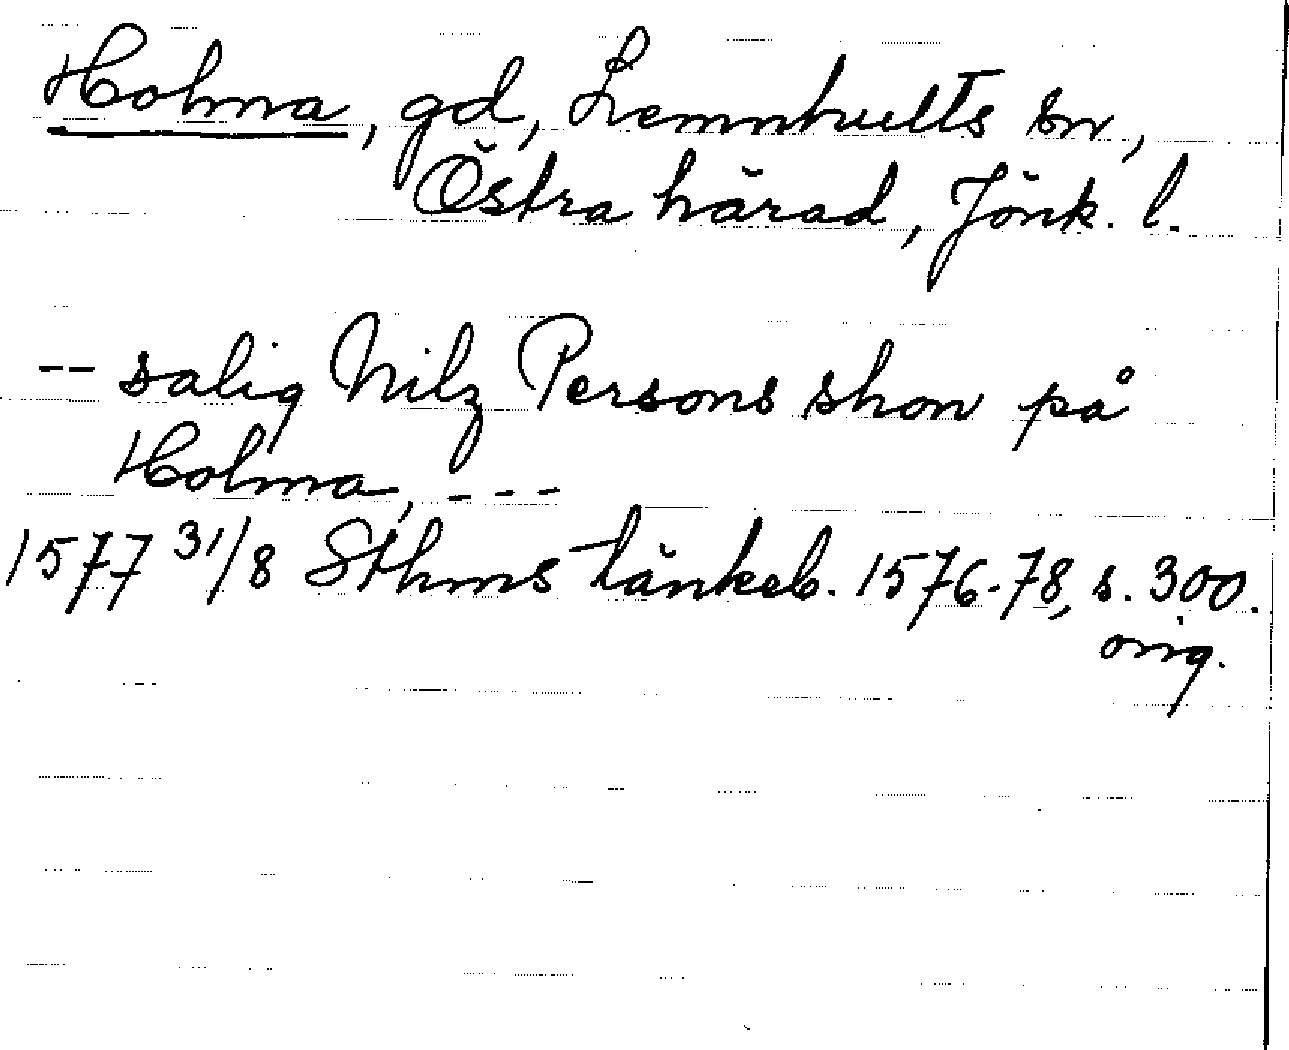 Holma, gd, Lemnhults sn,
Östra härad, Jönk. l.
-- salig Nilz Persons shon på
Holma, ---
1577 31/8 Sthms tänkeb. 1576-78, s. 300.
orig.